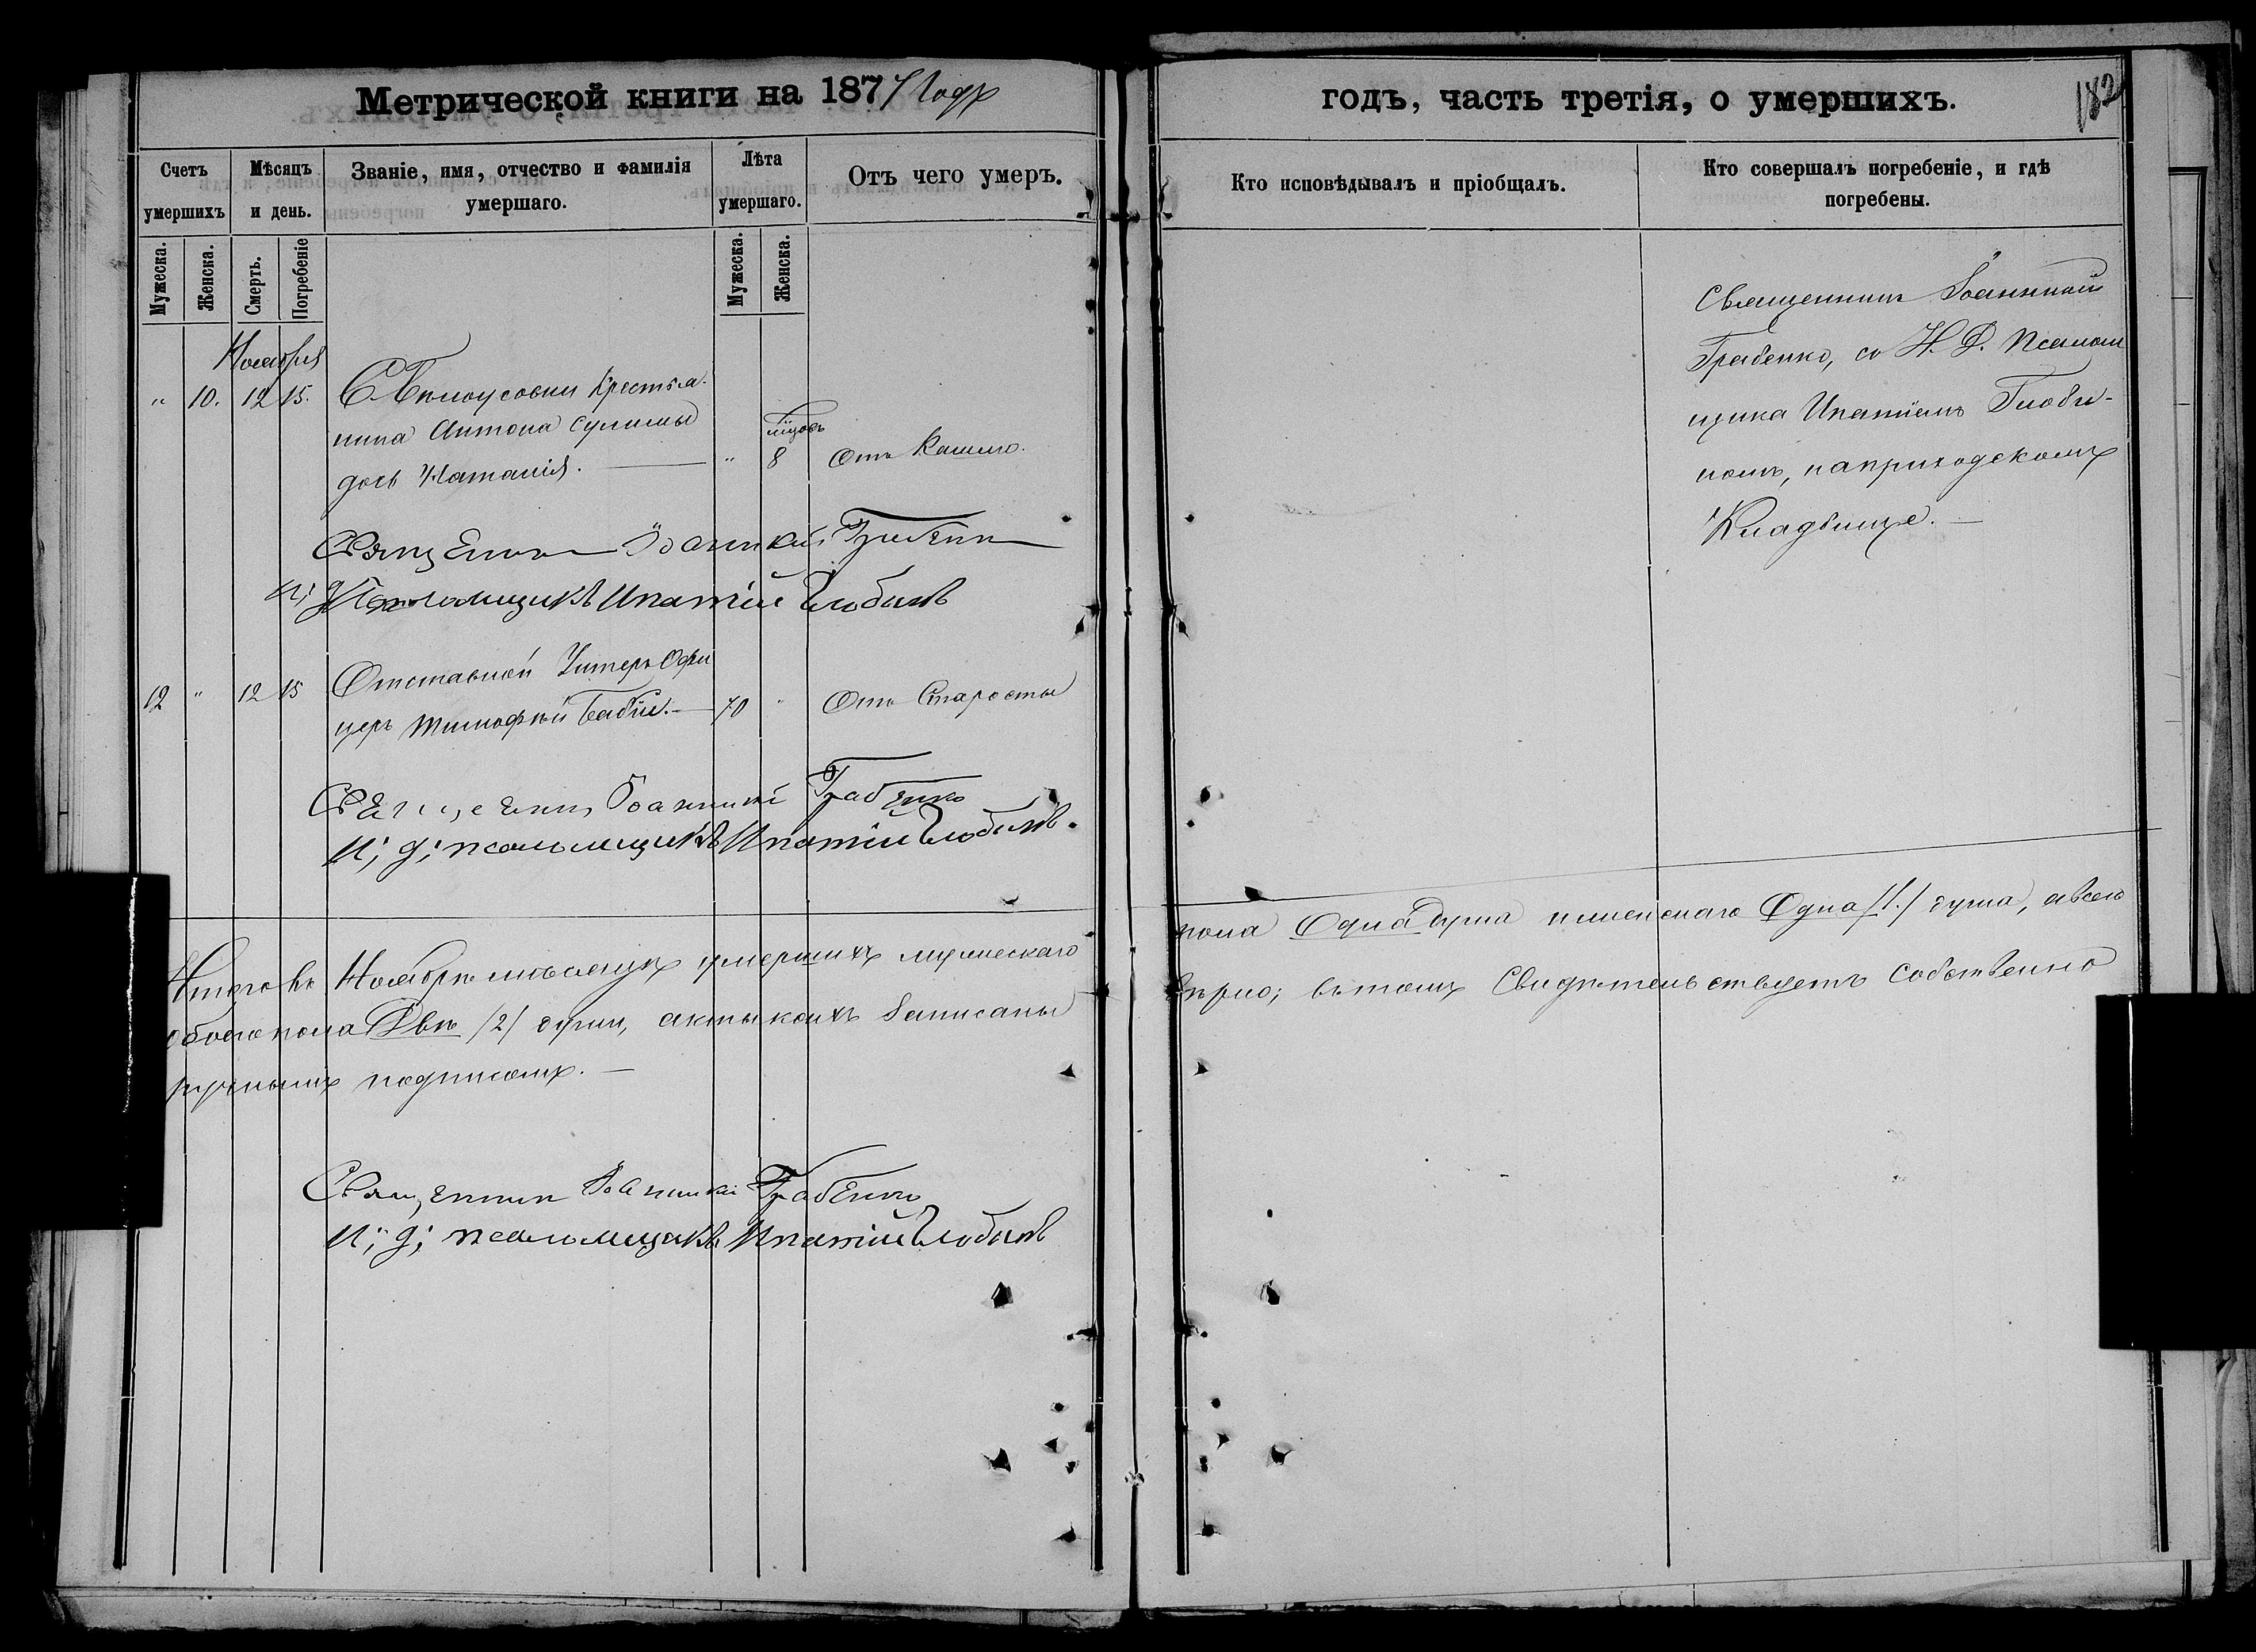 Метрической книги на 1877 годъ
годъ, часть третія, о умершихъ.
182
Счетъ умершихъ
Мѣсяцъ и день.
Званіе, имя, отчество и фамилія умершаго.
Лѣта умершаго.
Отъ чего умеръ.
Кто исповѣдывалъ и пріобщалъ.
Кто совершалъ погребеніе, и гдѣ погребены.
Мужеска.
Женска.
Смерть.
Погребеніе
Мужеска.
Женска.
Ноября
" 10. 12 15.
Крестья-
нина Антона Сулимы
дочь Наталія. " 8 Отъ Кашлю.
Священникъ Іоанникій
Грабенко, со И. Д. Псалом
щика Ипатіемъ Глоби-
номъ, наприходскомъ
Кладбище.
Священникъ Іоанникій Грабенко
И; д; Псаломщикъ Ипатій Глобинъ
12 " 12 15 Отставной Унтеръ Офи
церъ Тимофѣй Бабій. 70 " Отъ Старости
Священникъ Іоанникій Грабенко
И; д; псаломщикъ Ипатій Глобинъ.
Итого въ Ноябрѣ мѣсяцѣ умершихъ мужескаго
пола Одна душа и женскаго Одна /1./ душа, авсего
обоего пола Двѣ /2/ души, акты коихъ записаны
вѣрно; въ томъ Свидѣтельствуетъ Собственно
ручнымъ подписомъ.
Священникъ Іоанникій Грабенко
И; д; псаломщикъ Ипатій Глобинъ